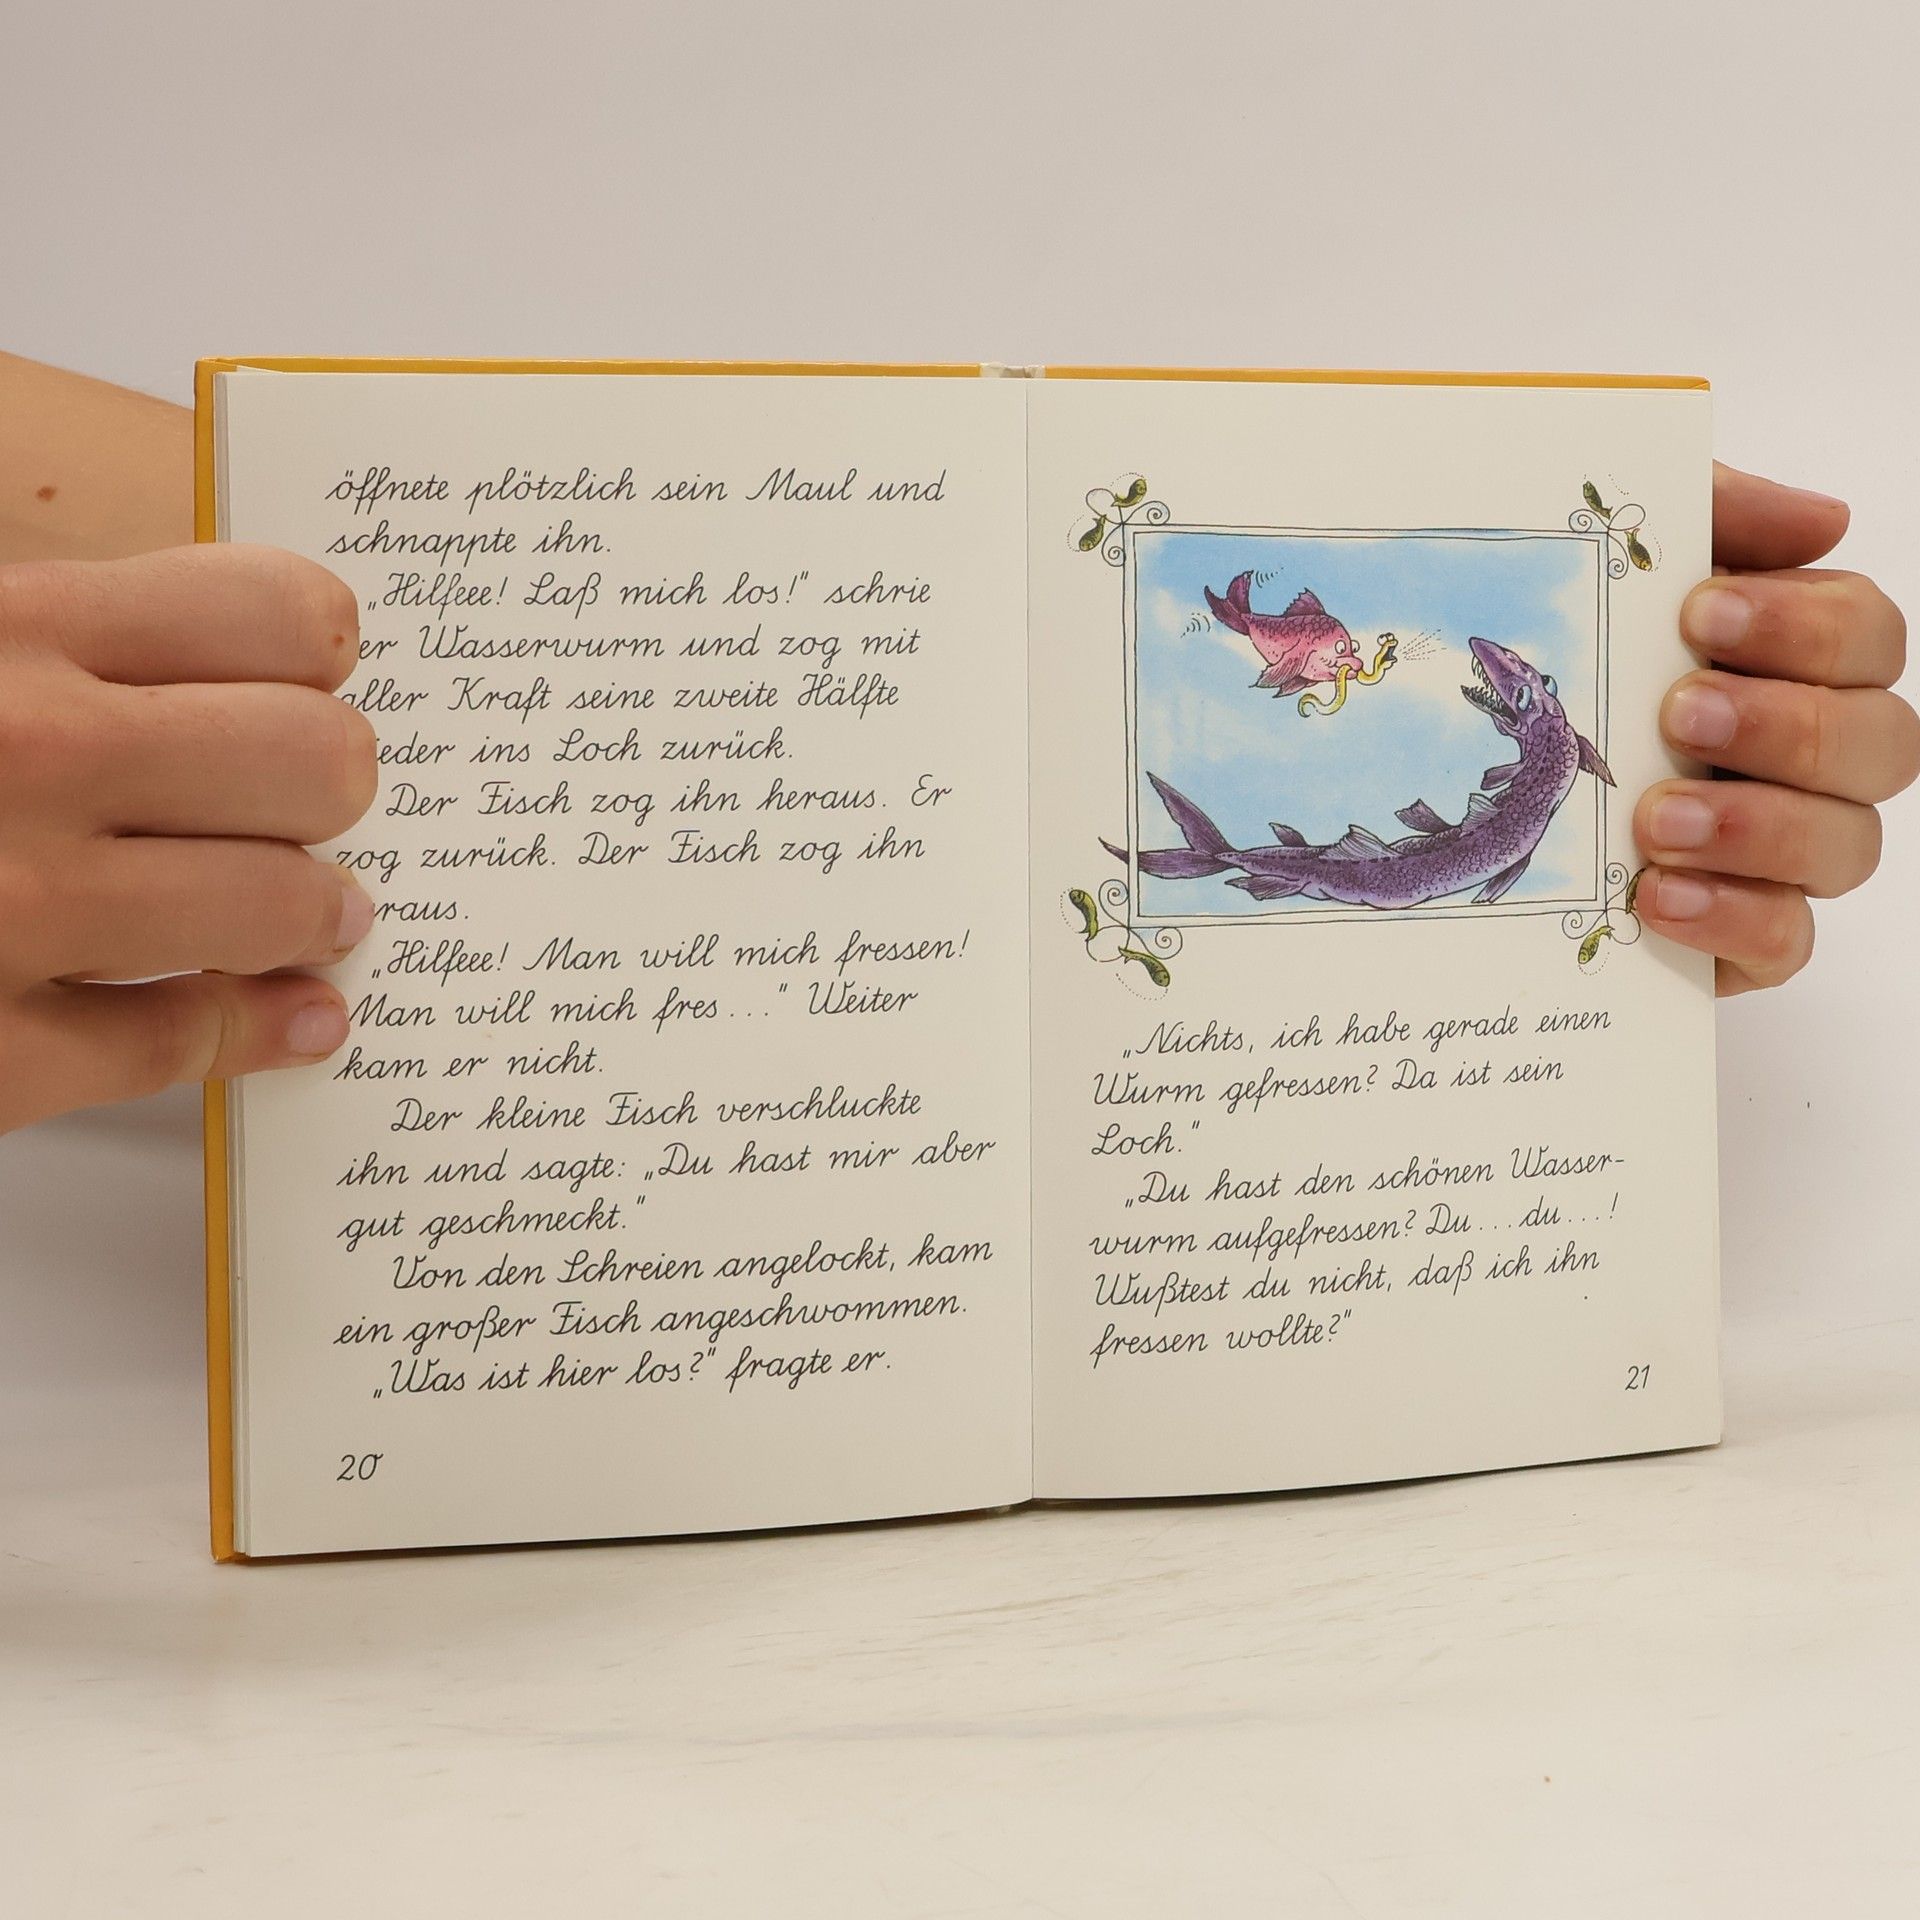 öffnete plötzlich sein Maul und
schnappte ihn.
„Hilfeee! Laß mich los!" schrie
er Wasserwurm und zog mit
aller Kraft seine zweite Hälfte
ieder ins Loch zurück.
Der Fisch zog ihn heraus. Er
zog zurück. Der Fisch zog ihn
raus.
„Hilfeee! Man will mich fressen!
Man will mich fres..." Weiter
kam er nicht.
Der kleine Fisch verschluckte
ihn und sagte: „Du hast mir aber
gut geschmeckt."
Von den Schreien angelockt, kam
ein großer Fisch angeschwommen.
„Was ist hier los?" fragte er.
20
„Nichts, ich habe gerade einen
Wurm gefressen? Da ist sein
Loch."
„Du hast den schönen Wasser-
wurm aufgefressen? Du...du...!
Wußtest du nicht, daß ich ihn
fressen wollte?"
21